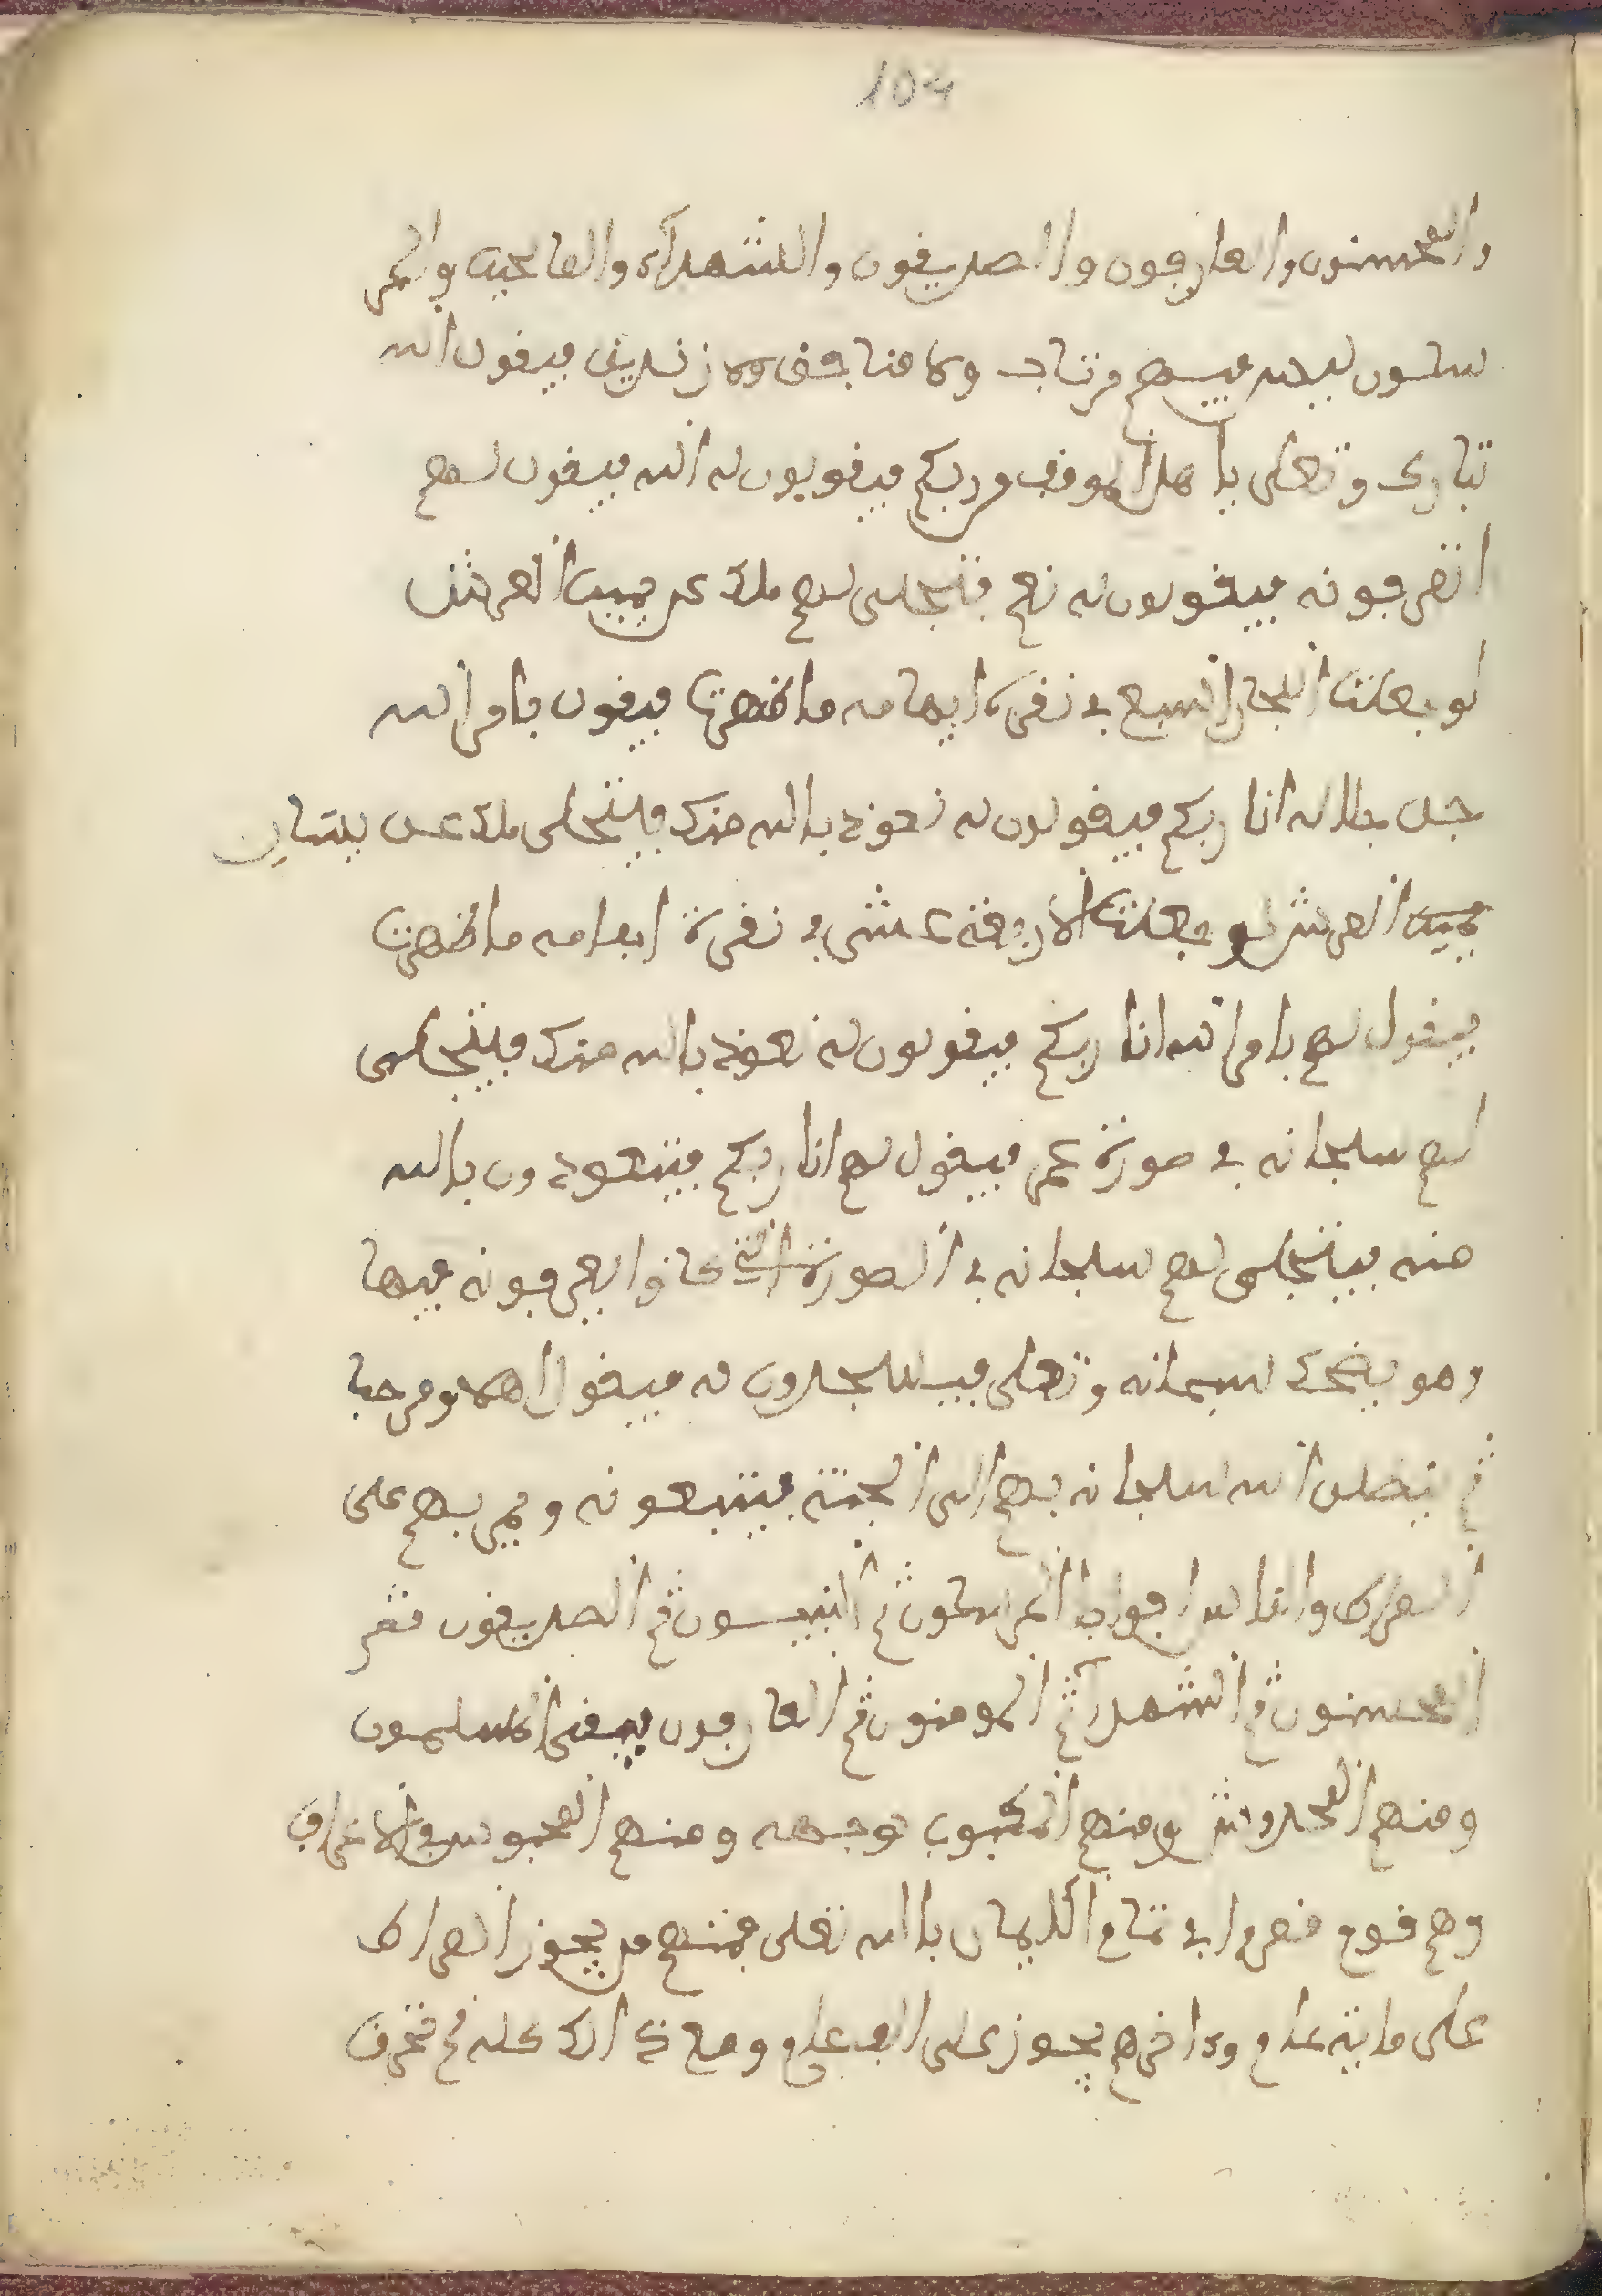 104
والمحسنون والعارفون والصديقون والشهدآء والصالحين والمر
سلون ليس فيهم مرتاب ولا منافق ولا زنديق فيقول الله
تبارك وتعلى يا اهل الموقف من ربكم فيقولون له الله فيقول لهم
اتعرفونه فيقولون له نعم فيتجلى لهم ملك عن يمين العرش
لو جعلت البحار السبع في نقرة ابهامه ما ظهرت فيقول بامر الله
جل جلاله انا ربكم فيقولون له نعوذ بالله منك فيتجلى ملك عن يسار
يمين العرش لو جعلت الاربعة عشر في نقرة ابهامه ما ظهرت
فيقول لهم بامر الله انا ربكم فيقولون له نعوذ بالله منك فيتجلى
لهم سبحانه في صورة غير فيقول لهم انا ربكم فيتعوذون بالله
منه فيتجلى لهم سبحانه في الصورة التي كانوا يعرفونه فيها
وهو يضحك سبحانه وتعلى فيسجدون له فيقول اهلا ومرحبا
ثم ينطلق الله سبحانه بهم الى الجنة فيتبعونه ويمر بهم على
الصراط والناس افواجا المرسلون ثم النبيون ثم الصديقون ثم
المحسنون ثم الشهدآ ثم المومنون ثم العارفون يبقى المسلمون
ومنهم المخدوش ومنهم المكبوب لوجهه ومنهم المحبوس في الاعراف
وهم قوم قصروا في تمام الايمان بالله تعلى فمنهم من يجوز الصراط
على ماية عام وءاخرهم يجوز على الف عام ومع ذالك كله لم تحرق